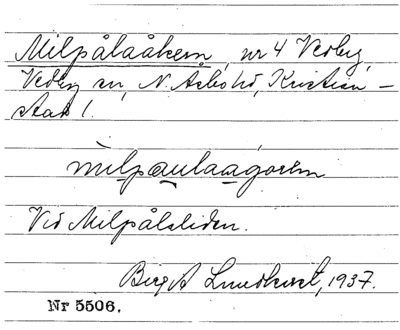 Milpålaåkern, nr 4 Vedby,
Vedby sn, N. Åsbo hd, Kristian-
stads l.
milpaulaagoren
Vid Milpålsliden.
Birg A Lundkvist, 1937.
Nr 5506.